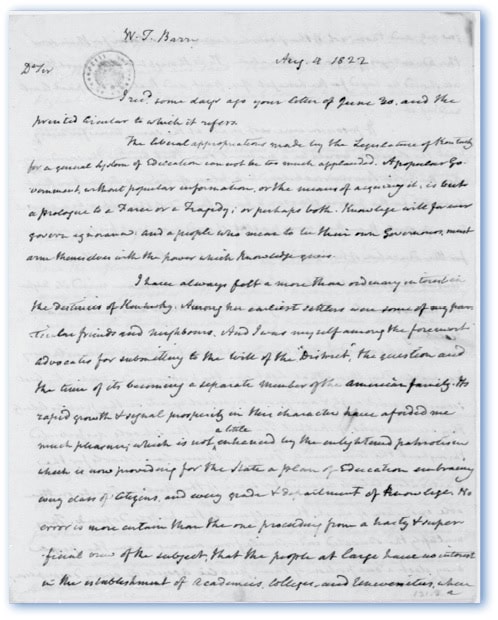 W. T. Barry
Aug. 4 1822
Dr Sir
I recd. some days ago your letter of June 30, and the
printed Circular to which it refers.
The liberal appropriations made by the Legislature of Kentucky
for a general System of Education cannot be too much applauded. A popular Go-
vernment, without popular information, or the means of acquiring it, is but
a Prologue to a Farce or a Tragedy; or perhaps both. Knowledge will for ever
govern ignorance: and a people who mean to be their own Governors, must
arm themselves with the power which Knowledge gives.
I have always felt a more than ordinary interest in
the destinies of Kentucky. Among her earliest settlers were some of my par-
ticular friends and neighbours. And I was myself among the foremost
advocates for submitting to the Will of the "District", the question and
the time of its becoming a separate member of the American family. Its
rapid growth & signal prosperity in this character have afforded me
much pleasure; which is not a little enhanced by the enlightened patriotism
which is now providing for the State a plan of Education embracing
every class of Citizens, and every grade & department of Knowledge. No
error is more certain than the one proceeding from a hasty & super-
ficial view of the subject, that the people at large have no interest
in the establishment of Academies, Colleges, and Universities, where
a